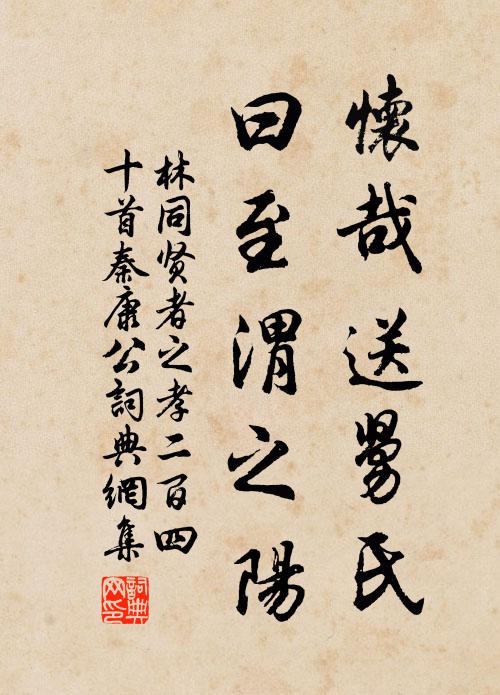 懷哉送舅氏
曰至渭之陽
林同贤者之孝二百四
十首秦康公詞典網集
詞典网印